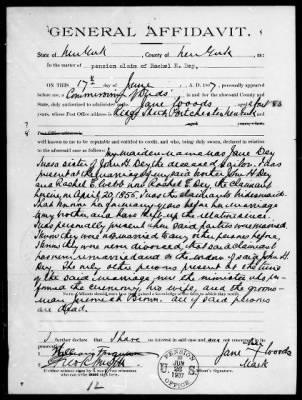 GENERAL AFFIDAVIT.
State of New York, County of New York, ss:
In the matter of pension claim of Rachel E. Dey,
ON THIS 17th day of June, A. D. 1907, personally appeared
before me, a Commissioner of Deeds in and for the aforesaid County and
State, duly authorized to administer oaths Jane Woods aged 83
years, whose Post Office address is Portchester New York
well known to me to be reputable and entitled to credit, and who, being duly sworn, declared in
relation to the aforesaid case as follows:
My maiden name was Jane Dey
I was a sister of John H Dey the deceased sailor. I was
present at the marriage of my said brother John H Dey
and Rachel E. Webb now Rachel E. Dey, the claimant
herein, on April 20, 1855. I was the claimant's bridesmaid
I had known her for years before her marriage
to my brother, and have kept up the relations since.
I was personally present when said parties were married.
I know they were not married to any other person before.
I know they were never divorced, that said claimant
has never remarried since the death of said John H.
Dey. The only other persons present at the time
of the said marriage were the minister who per-
formed the ceremony, his wife, and the grooms-
man Jeremiah Brown. All of said persons
are dead.
I further declare that I have no interest in said case and am not concerned in
its prosecution.
her
Jane X Woods
Mark
Affiant's signature.
PENSION
U S
JUN
1907
OFFICE
12